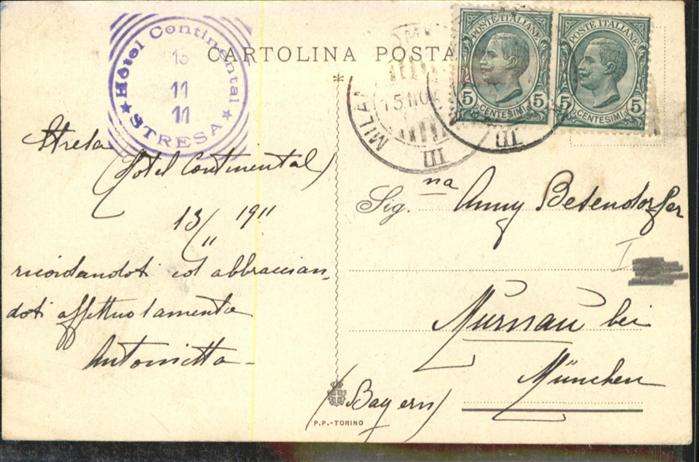 Hôtel Continental
13
11
11
★ STRESA ★
CARTOLINA POSTA
POSTE ITALIANE
5 CENTESIMI 5
POSTE ITALIANE
5 CENTESIMI 5
MILA
15 11
III
III
Stresa
(Hotel Continental)
13/11 1911
ricordandoti ed abbraccian
doti affettuosamente
Antonietta
Sig.na Anny Betendorfer
I
Murnau bei
München
(Bayern)
P.P.-TORINO